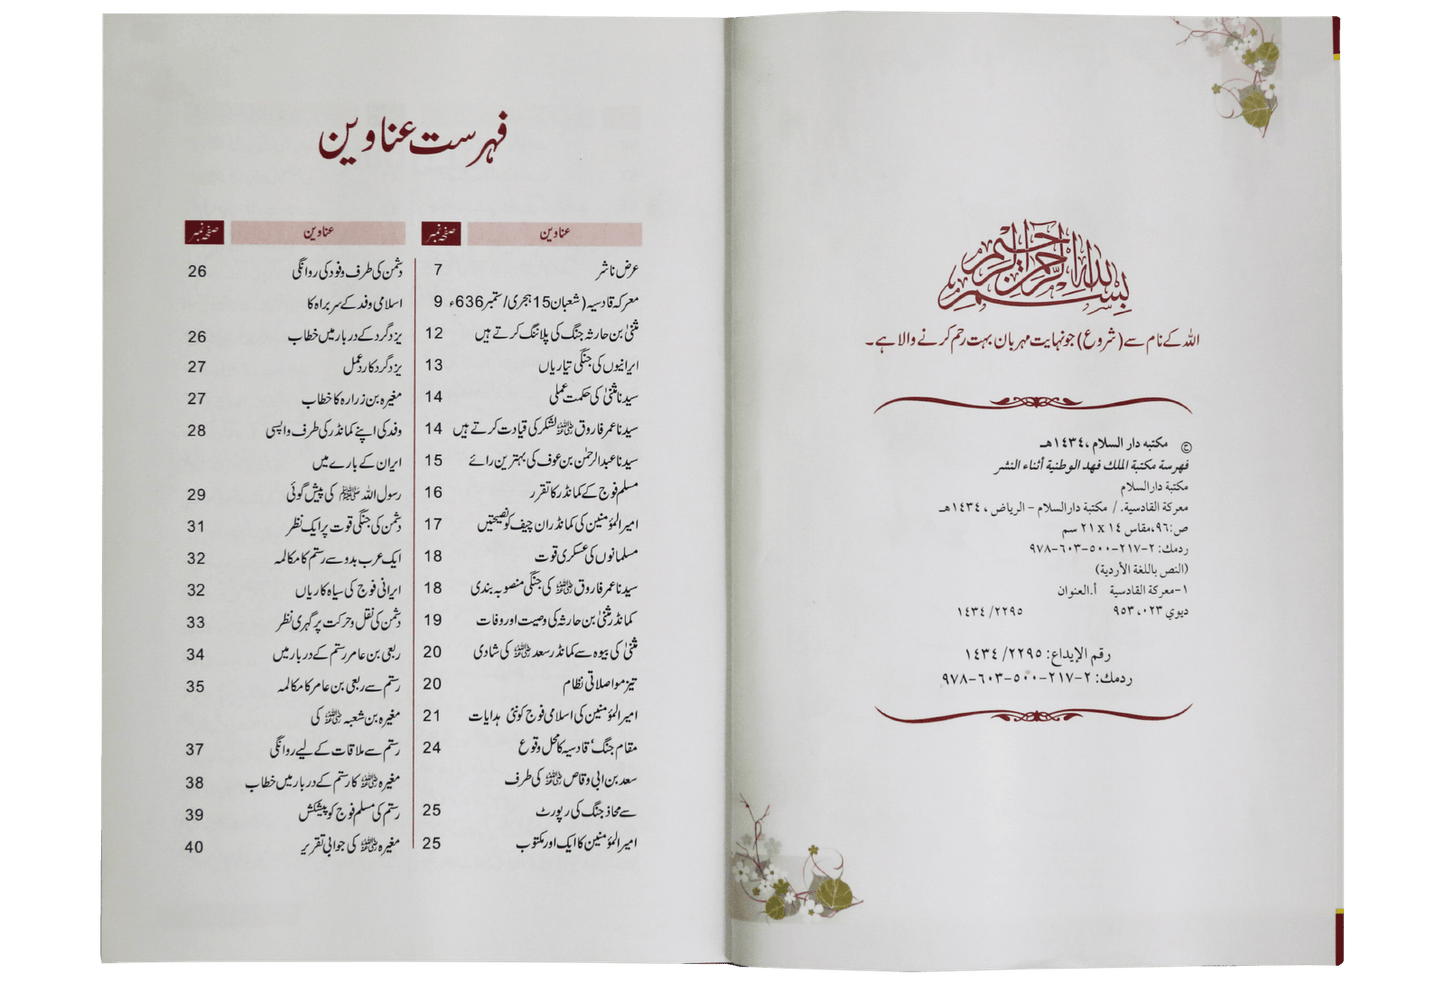 بسم الله الرحمن الرحيم
اللہ کے نام سے (شروع) جو نہایت مہربان بہت رحم کرنے والا ہے۔
© مكتبه دار السلام ،١٤٣٤هـ
فهرسة مكتبة الملك فهد الوطنية أثناء النشر
مكتبة دارالسلام
معركة القادسية. / مكتبة دارالسلام - الرياض ، ١٤٣٤هـ
ص:٩٦،مقاس ١٤ x ٢١ سم
ردمك: ٢-٢١٧-٥٠٠-٦٠٣-٩٧٨
(النص باللغة الأردية)
١-معركة القادسية أ.العنوان
ديوي ٩٥٣،٠٢٣ ١٤٣٤/٢٢٩٥
رقم الإيداع: ١٤٣٤/٢٢٩٥
ردمك: ٢-٢١٧-٥٠٠-٦٠٣-٩٧٨
فہرست عناوین
عناوین صفحہ نمبر
عرض ناشر 7
معرکہ قادسیہ (شعبان 15 ہجری/ستمبر 636ء 9
مثنیٰ بن حارثہ جنگ کی پلاننگ کرتے ہیں 12
ایرانیوں کی جنگی تیاریاں 13
سیدنا مثنیٰ کی حکمت عملی 14
سیدنا عمر فاروق ﷜ لشکر کی قیادت کرتے ہیں 14
سیدنا عبدالرحمٰن بن عوف کی بہترین رائے 15
مسلم فوج کے کمانڈر کا تقرر 16
امیرالمؤمنین کی کمانڈر ان چیف کو نصیحتیں 17
مسلمانوں کی عسکری قوت 18
سیدنا عمر فاروق ﷜ کی جنگی منصوبہ بندی 18
کمانڈر مثنیٰ بن حارثہ کی وصیت اور وفات 19
مثنیٰ کی بیوہ سے کمانڈر سعد ﷜ کی شادی 20
تیز مواصلاتی نظام 20
امیرالمؤمنین کی اسلامی فوج کو نئی ہدایات 21
مقام جنگ ’ قادسیہ کا محل وقوع 24
سعد بن ابی وقاص ﷜ کی طرف
سے محاذ جنگ کی رپورٹ 25
امیرالمؤمنین کا ایک اور مکتوب 25
عناوین صفحہ نمبر
دشمن کی طرف وفود کی روانگی 26
اسلامی وفد کے سربراہ کا
یزدگرد کے دربار میں خطاب 26
یزدگرد کا ردعمل 27
مغیرہ بن زرارہ کا خطاب 27
وفد کی اپنے کمانڈر کی طرف واپسی 28
ایران کے بارے میں
رسول اللہ ﷺ کی پیش گوئی 29
دشمن کی جنگی قوت پر ایک نظر 31
ایک عرب بدو سے رستم کا مکالمہ 32
ایرانی فوج کی سیاہ کاریاں 32
دشمن کی نقل و حرکت پر گہری نظر 33
ربعی بن عامر رستم کے دربار میں 34
رستم سے ربعی بن عامر کا مکالمہ 35
مغیرہ بن شعبہ ﷜ کی
رستم سے ملاقات کے لیے روانگی 37
مغیرہ ﷜ کا رستم کے دربار میں خطاب 38
رستم کی مسلم فوج کو پیشکش 39
مغیرہ ﷜ کی جوابی تقریر 40